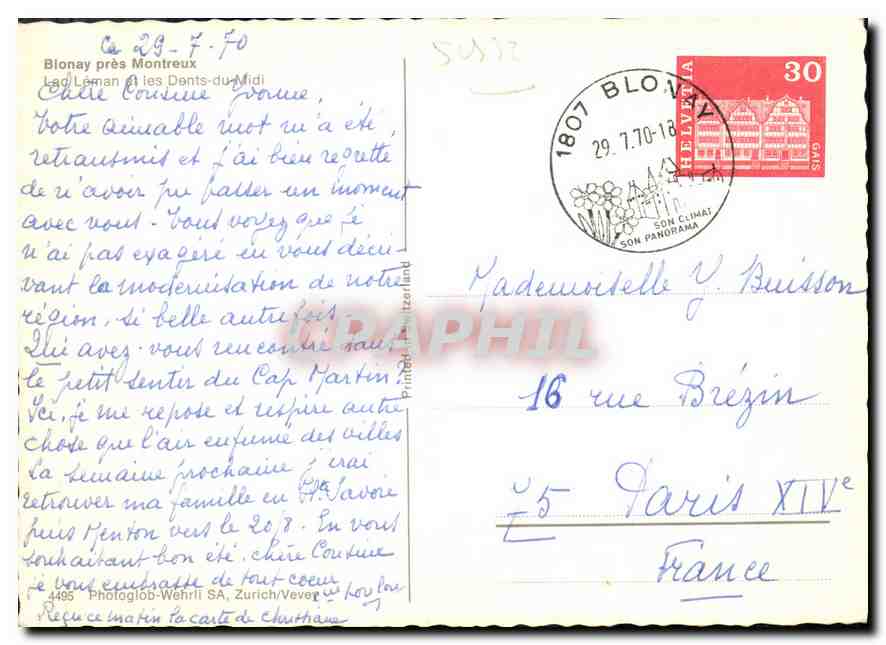 Ce 29-7-70
Blonay près Montreux
Lac Léman et les Dents-du-Midi
Chère Cousine Yvonne,
Votre aimable mot m'a été
retransmis et j'ai bien regretté
de n'avoir pu passer un moment
avec vous - Vous voyez que je
n'ai pas exagéré en vous décri-
vant la modernisation de notre
région, si belle autrefois -
Qui avez-vous rencontré dans
le petit sentir du Cap Martin?
Ici, je me repose et respire autre
chose que l'air enfumé des villes
La semaine prochaine j'irai
retrouver ma famille en Hte Savoie
puis Menton vers le 20/8. En vous
souhaitant bon été, chère Cousine
je vous embrasse de tout coeur
4495 Photoglob-Wehrli SA, Zurich/Vevey
Reçu ce matin la carte de Christiane
Printed in Switzerland
1807 BLONAY
29.7.70-18
SON CLIMAT
SON PANORAMA
HELVETIA
30
GAIS
Mademoiselle Y. Buisson
16 rue Brézin
75 Paris XIVe
France
CPAPHIL